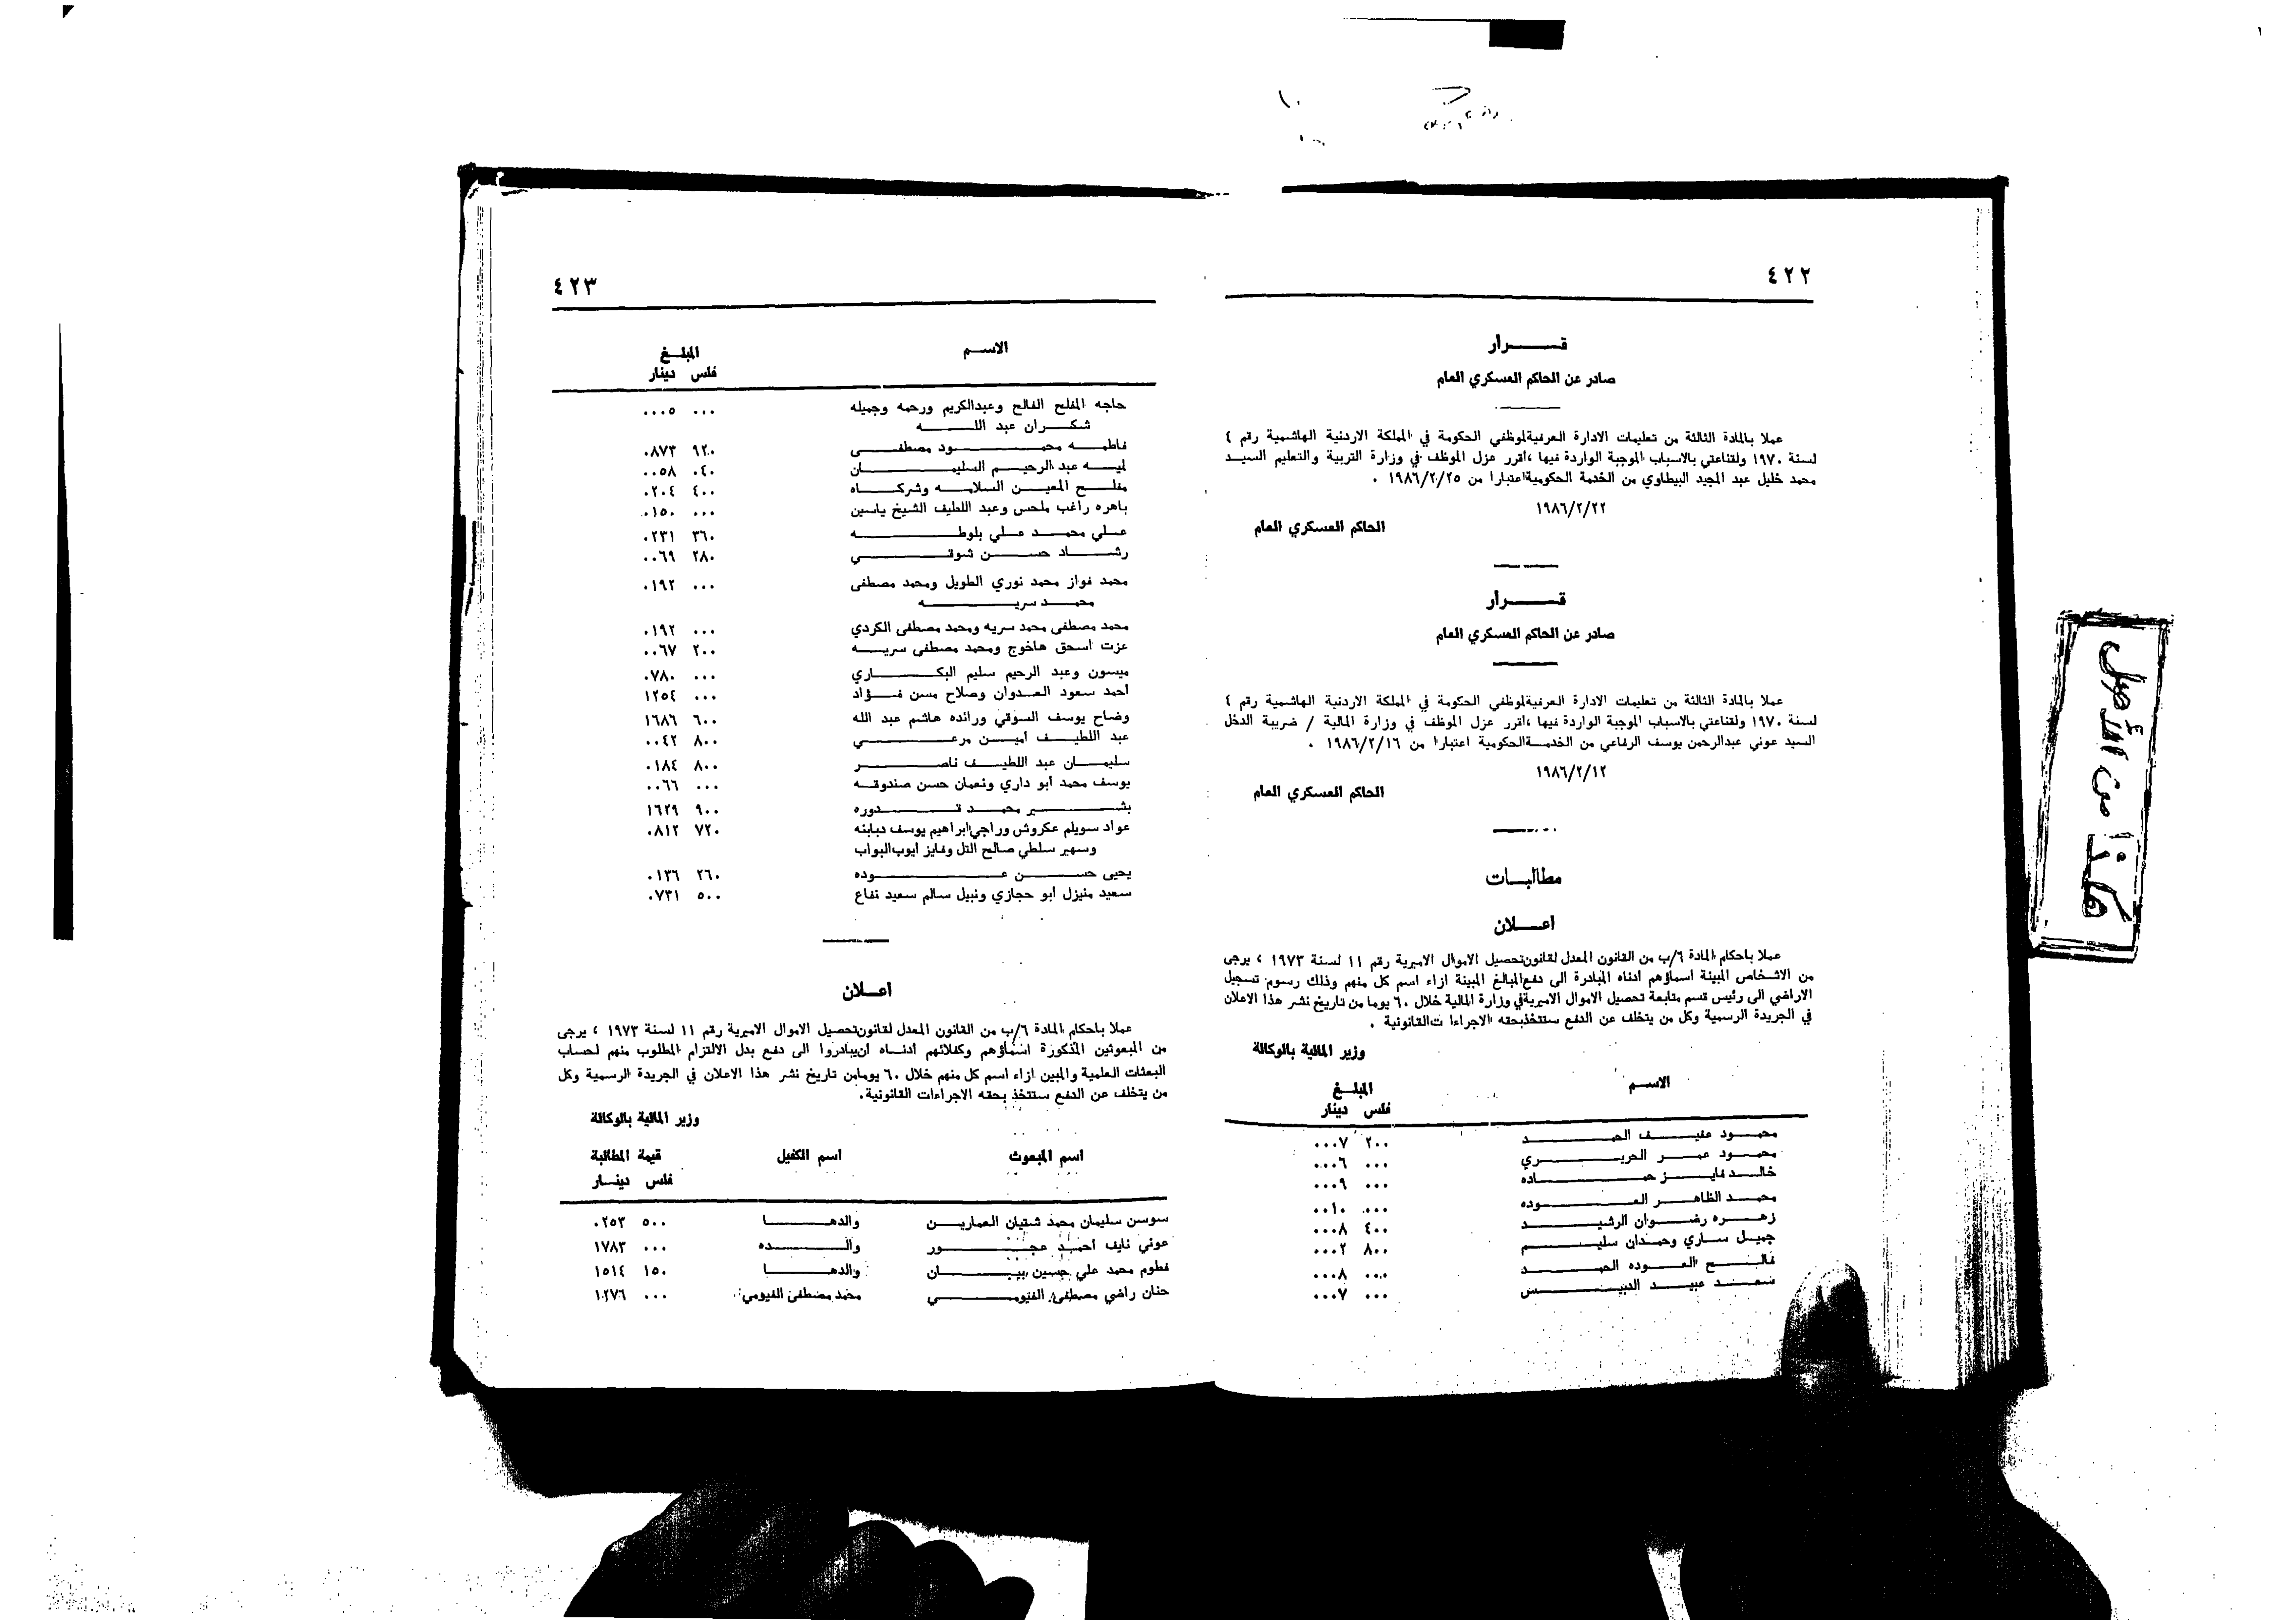 ٤٢٢
قـــــرار
صادر عن الحاكم العسكري العام
عملا بالمادة الثالثة من تعليمات الادارة العرفية لموظفي الحكومة في المملكة الاردنية الهاشمية رقم ٤
لسنة ١٩٧٠ ولقناعتي بالاسباب الموجبة الواردة فيها ، اقرر عزل الموظف في وزارة التربية والتعليم السيـــد
محمد خليل عبد المجيد البيطاوي من الخدمة الحكومية اعتبارا من ١٩٨٦/٢/٢٥ .
١٩٨٦/٢/٢٢
الحاكم العسكري العام
قـــــرار
صادر عن الحاكم العسكري العام
عملا بالمادة الثالثة من تعليمات الادارة العرفية لموظفي الحكومة في المملكة الاردنية الهاشمية رقم ٤
لسنة ١٩٧٠ ولقناعتي بالاسباب الموجبة الواردة فيها ، اقرر عزل الموظف في وزارة المالية / ضريبة الدخل
السيد عوني عبدالرحمن يوسف الرفاعي من الخدمـــة الحكومية اعتبارا من ١٩٨٦/٢/١٦ .
١٩٨٦/٢/١٢
الحاكم العسكري العام
مطالبـــات
اعـــــلان
عملا باحكام المادة ٦/ب من القانون المعدل لقانون تحصيل الاموال الاميرية رقم ١١ لسنة ١٩٧٣ ، يرجى
من الاشخاص المبينة اسماؤهم ادناه المبادرة الى دفع المبالغ المبينة ازاء اسم كل منهم وذلك رسوم تسجيل
الاراضي الى رئيس قسم متابعة تحصيل الاموال الاميرية في وزارة المالية خلال ٦٠ يوما من تاريخ نشر هذا الاعلان
في الجريدة الرسمية وكل من يتخلف عن الدفع ستتخذ بحقه الاجراءات القانونية .
وزير المالية بالوكالة
الاســـم المبلـــغ
فلس دينار
محمـــود عفيـــف الحمـــد ٢٠٠ ٠٠٠٧
محمـــود عمـــر الحريـــري ٠٠٠ ٠٠٠٦
خالـــد فايـــز حمـــاده ٠٠٠ ٠٠٠٩
محمـــد الظاهـــر العـــوده ٠٠٠ ٠٠١٠
زهـــره رضـــوان الرشيـــد ٤٠٠ ٠٠٠٨
جميـــل ســـاري وحمـــدان سليـــم ٨٠٠ ٠٠٠٢
فالـــح العـــوده الحمـــد ٠٠٠ ٠٠٠٨
سعـــد عبيـــد الدبيـــس ٠٠٠ ٠٠٠٧
٤٢٣
الاســـم المبلـــغ
فلس دينار
حاجه المفلح الفالح وعبدالكريم ورحمه وجميله ٠٠٠ ٠٠٠٥
شكـــران عبد اللـــه
فاطمـــه محمـــود مصطفـــى ٩٢٠ ٠٨٧٣
ليـــه عبد الرحيـــم السليمـــان ٠٤٠ ٠٠٥٨
مفلـــح المعيـــن السلامـــه وشركـــاه ٤٠٠ ٠٢٠٤
باهره راغب ملحس وعبد اللطيف الشيخ ياسين ٠٠٠ ٠١٥٠
علـــي محمـــد علـــي بلوطـــه ٣٦٠ ٠٢٣١
رشـــاد حســـن شوقـــي ٢٨٠ ٠٠٦٩
محمد فواز محمد نوري الطويل ومحمد مصطفى ٠٠٠ ٠١٩٢
محمـــد سريـــه
محمد مصطفى محمد سريه ومحمد مصطفى الكردي ٠٠٠ ٠١٩٢
عزت اسحق هاخوج ومحمد مصطفى سريـــه ٢٠٠ ٠٠٦٧
ميسون وعبد الرحيم سليم البكـــاري ٠٠٠ ٠٧٨٠
احمد سعود العـــدوان وصلاح مسن فـــؤاد ٠٠٠ ١٢٥٤
وضاح يوسف السوقي ورائده هاشم عبد الله ٦٠٠ ١٦٨٦
عبد اللطيـــف اميـــن مرعـــي ٨٠٠ ٠٠٤٢
سليمـــان عبد اللطيـــف ناصـــر ٨٠٠ ٠١٨٤
يوسف محمد ابو داري ونعمان حسن صندوقـــه ٠٠٠ ٠٠٦٦
بشـــير محمـــد قـــدوره ٩٠٠ ١٦٢٩
عواد سويلم عكروش وراجي ابراهيم يوسف دبابنه ٧٢٠ ٠٨١٢
وسهير سلطي صالح التل وفايز ايوب البواب
يحيى حســـن عـــوده ٢٦٠ ٠١٣٦
سعيد منيزل ابو حجازي ونبيل سالم سعيد نفاع ٥٠٠ ٠٧٣١
اعـــــلان
عملا باحكام المادة ٦/ب من القانون المعدل لقانون تحصيل الاموال الاميرية رقم ١١ لسنة ١٩٧٣ ، يرجى
من المبعوثين المذكورة اسماؤهم وكفلائهم ادنـــاه ان يبادروا الى دفع بدل الالتزام المطلوب منهم لحساب
البعثات العلمية والمبين ازاء اسم كل منهم خلال ٦٠ يوما من تاريخ نشر هذا الاعلان في الجريدة الرسمية وكل
من يتخلف عن الدفع ستتخذ بحقه الاجراءات القانونية .
وزير المالية بالوكالة
اسم المبعوث اسم الكفيل قيمة المطالبة
فلس دينـــار
سوسن سليمان محمد شتيان العماريـــن والدهـــا ٥٠٠ ٠٢٥٣
عوني نايف احمـــد عجـــور والـــده ٠٠٠ ١٧٨٣
فطوم محمد علي حسين بيـــان والدهـــا ١٥٠ ١٥١٤
حنان راضي مصطفى الفيومـــي محمد مصطفى الفيومي ٠٠٠ ١٠٢٧٦
هكذا من الأصل